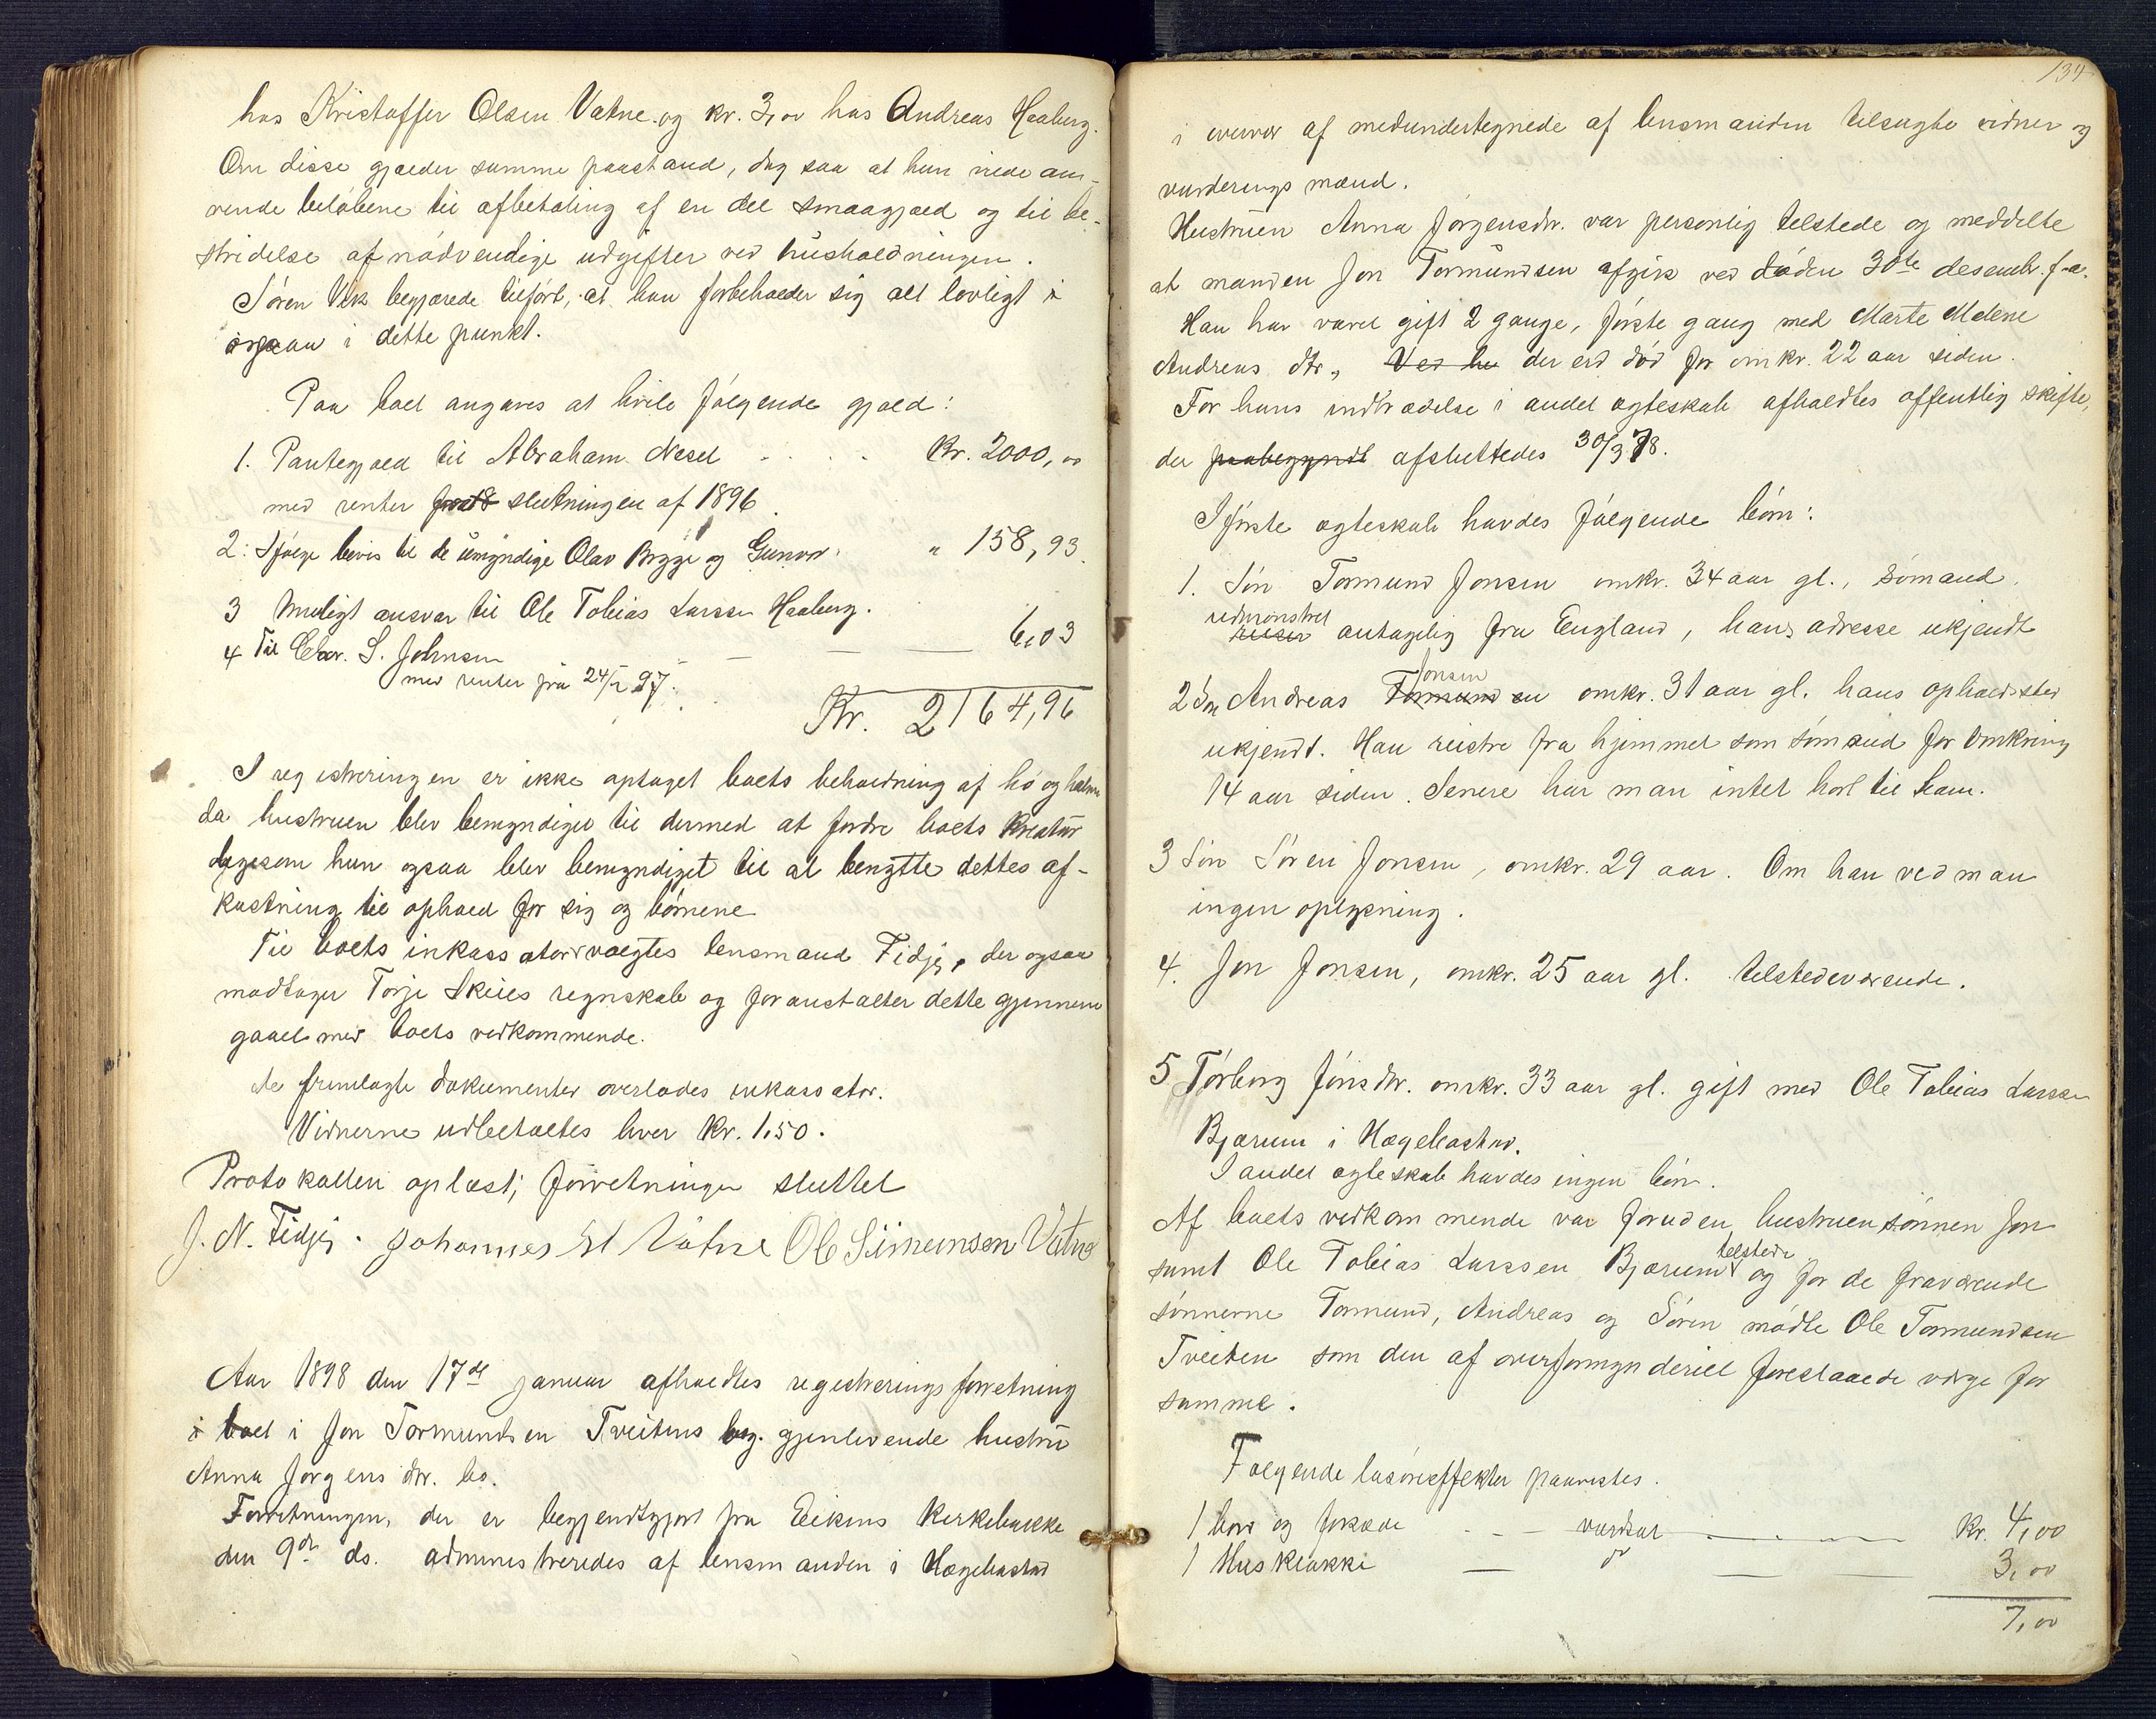 hos Kristoffer Olsen Vatne og kr. 3,00 hos Andreas Haaberg.
Om disse gjælder samme paastand, dog saa at hun maa an-
vende beløbene til afbetaling af en del smaagjæld og til be-
stridelse af nødvendige udgifter ved husholdningen.
Søren Vek begjærede tilført, at han forbeholder sig alt lovligt i
i dette punkt.
Paa boet angaves at hvile følgende gjæld:
1. Pantegjæld til Abraham Nesel . . . . Kr. 2000,00
med renter fra slutningen af 1896.
2. Ifølge bevis til de umyndige Olav Brygge og Gunvor. " 158,93.
3 Muligt ansvar til Ole Tobias Larssen Haaberg.
4 Til Chr. S. Johnsen — — 6,03
med renter fra 24/2 97.
Kr. 2164,96
I registreringen er ikke optaget boets beholdning af hø og halm
da hustruen blev bemyndiget til dermed at fodre boets kreatur
ligesom hun ogsaa blev bemyndiget til at benytte dettes af-
kastning til ophold for sig og børnene
Til boets inkassator valgtes lensmand Fidje, der ogsaa
modtager Torje Skeies regnskab og foranstalter dette gjennem-
gaaet med boets vedkommende.
De fremlagte dokumenter overlodes inkassator.
Vidnerne udbetaltes hver Kr. 1,50.
Protokollen oplæst; forretningen sluttet
J. N. Fidje. Johannes El Vatne Ole Simonsen Vatne
Aar 1898 den 17de januar afholdtes registreringsforretning
i boet i Jon Tormundsen Tveitens og gjenlevende hustru
Anna Jørgensdtr. bo.
Forretningen, der er bekjendtgjort fra Eikens kirkebakke
den 9de ds. administreredes af lensmanden i Hægebostad
134
i overvær af medundertegnede af lensmanden tilsagte vidner og
vurderingsmænd.
Hustruen Anna Jørgensdtr. var personlig tilstede og meddelte
at manden Jon Tormundsen afgik ved døden 30te desembr. f.a.
Han har været gift 2 gange, første gang med Marte Malene
Andreas dtr., Ved hu der er død for omkr. 22 aar siden.
Før hans indtrædelse i andet ægteskab afholdtes offentlig skifte,
der paabegyndt afsluttedes 30/3 78.
I første ægteskab havdes følgende børn:
1. Søn Tormund Jonsen omkr. 34 aar gl., sømand.
udmønstret
reiser antagelig fra England, hans adresse ukjendt
Jonsen
2 Søn Andreas Tormundsen omkr. 31 aar gl. hans opholdssted
ukjendt. Han reiste fra hjemmet som sømand for omkring
14 aar siden. Senere har man intet hørt til ham.
3 Søn Søren Jonsen, omkr. 29 aar. Om han ved man
ingen oplysning.
4. Jon Jonsen, omkr. 25 aar gl. tilstedeværende.
5 Torborg Jonsdtr. omkr. 33 aar gl. gift med Ole Tobias Larssen
Bjærum i Hægebostad.
I andet ægteskab havdes ingen børn.
Af boets vedkommende var foruden hustruen sønnen Jon
tilstede
samt Ole Tobias Larssen Bjærum og for de fraværende
sønnerne Tormund, Andreas og Søren mødte Ole Tormundsen
Tveiten som den af overformynderiet foreslaaede værge for
samme.
Følgende løsøreeffekter paavistes.
1 bord og forklæde . - - vurdert — Kr. 4,00
1 Husklokke — do — 3,00
7,00